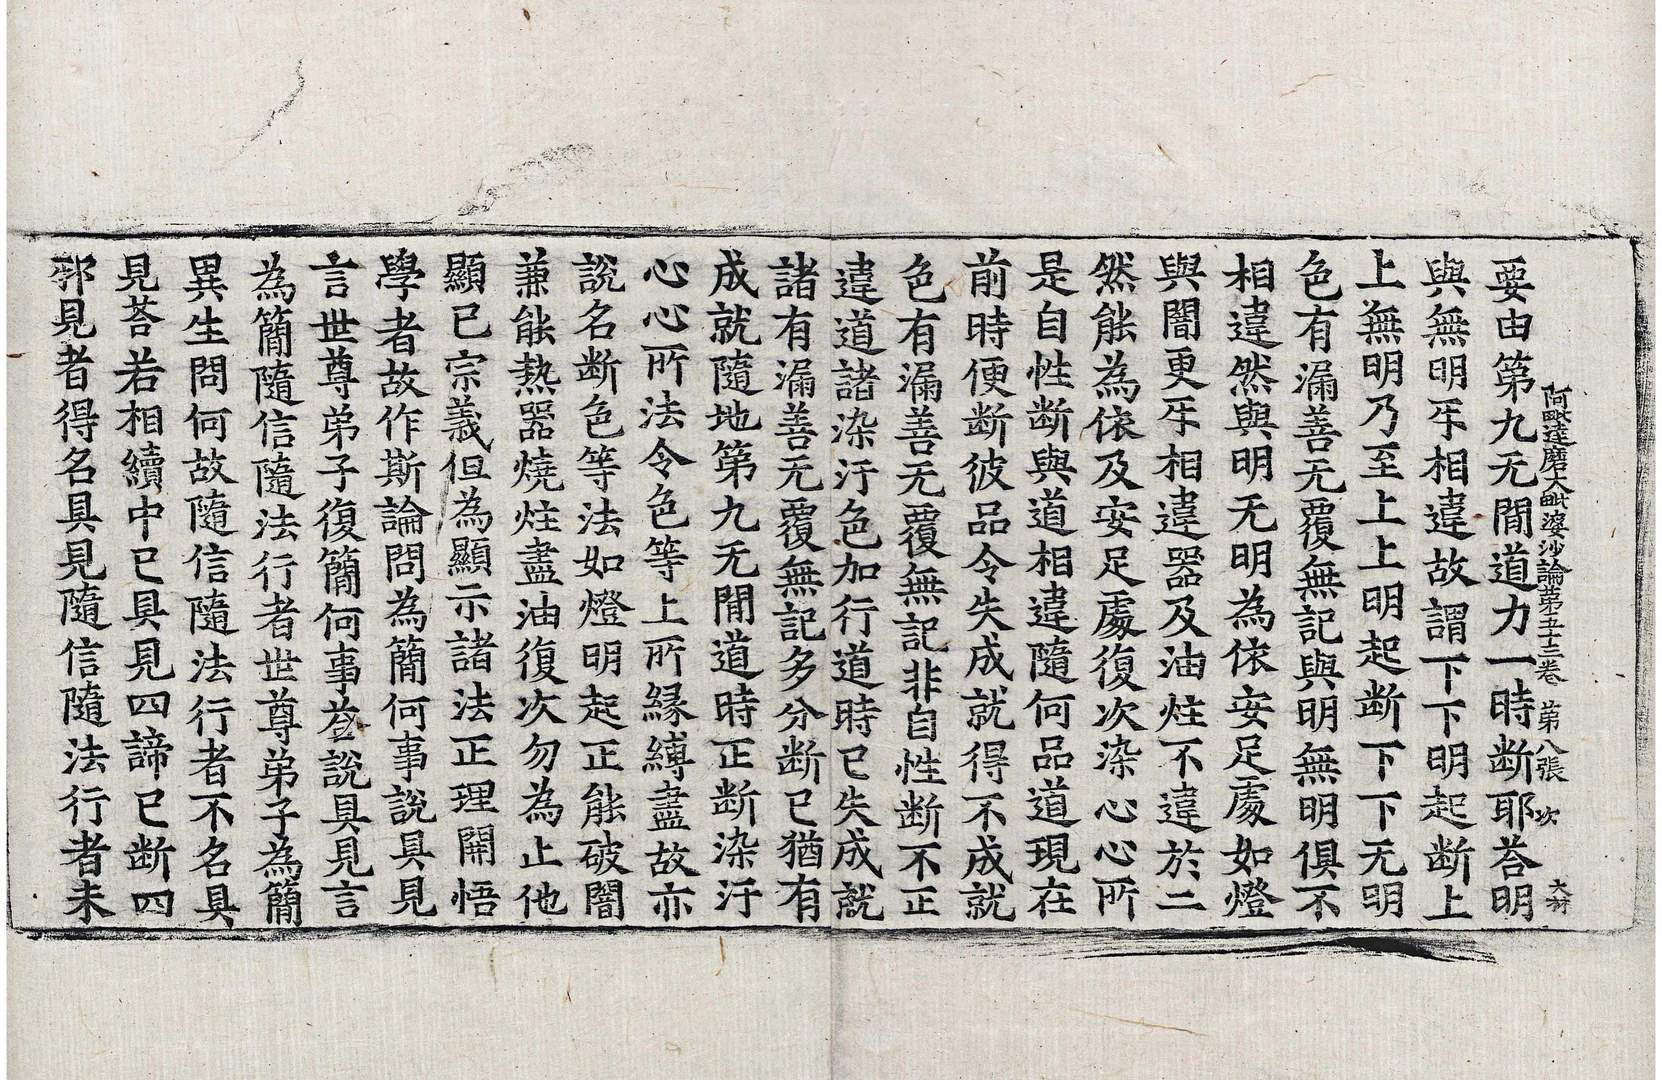 阿毗達磨大毗婆沙論第五十三卷 第八張 次 大材
要由第九无間道力一時断耶荅明
與無明乑相違故謂下下明起断上
上無明乃至上上明起断下下无明
色有漏善无覆無記與明無明俱不
相違然與明无明為依安足處如燈
與闇更乑相違器及油炷不違於二
然能為依及安足處復次染心心所
是自性断與道相違隨何品道現在
前時便断彼品令失成就得不成就
色有漏善无覆無記非自性断不正
違道諸染汙色加行道時已失成就
諸有漏善无覆無記多分断已猶有
成就隨地第九无間道時正断染汙
心心所法令色等上所緣縛盡故亦
說名断色等法如燈明起正能破闇
兼能熱器燒炷盡油復次勿為止他
顯已宗義但為顯示諸法正理開悟
學者故作斯論問為簡何事說具見
言世尊弟子復簡何事荅說具見言
為簡隨信隨法行者世尊弟子為簡
異生問何故隨信隨法行者不名具
見荅若相續中已具見四諦已断四
邪見者得名具見隨信隨法行者未